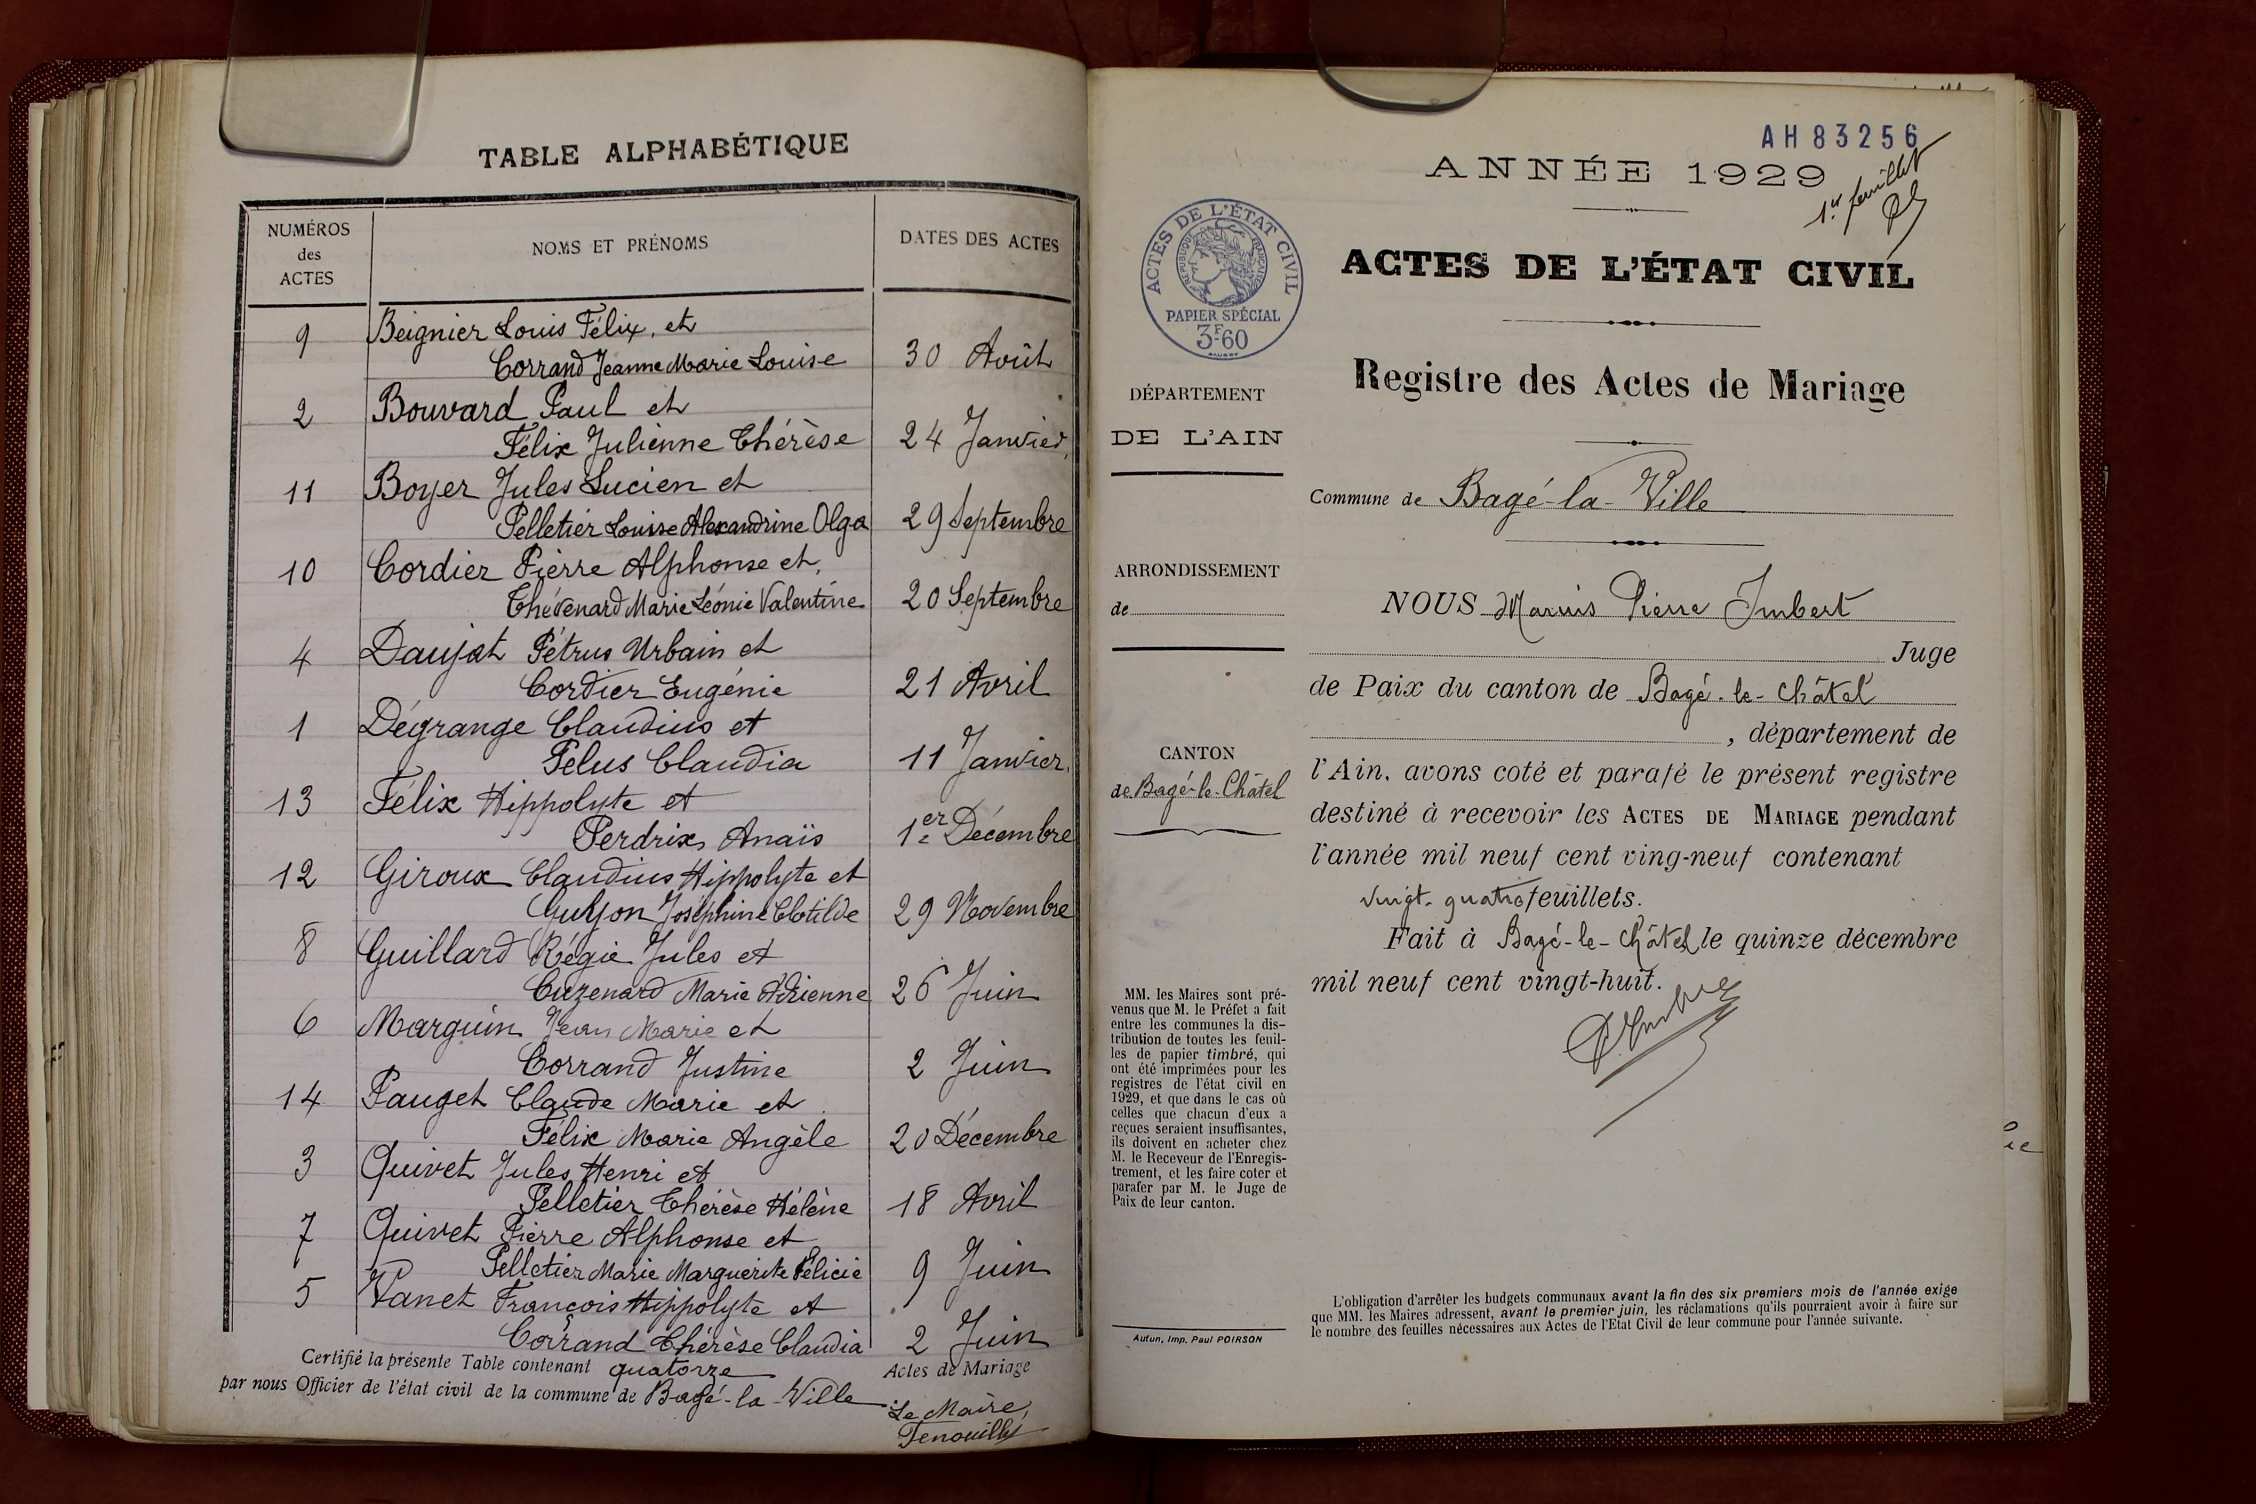 TABLE ALPHABÉTIQUE
NUMÉROS des ACTES
NOMS ET PRÉNOMS
DATES DES ACTES
9 Beignier Louis Félix, et
Corrand Jeanne Marie Louise 30 Août
2 Bouvard Paul et
Félix Julienne Thérèse 24 Janvier
11 Boyer Jules Lucien et
Pelletier Louise Alexandrine Olga 29 Septembre
10 Cordier Pierre Alphonse et
Thévenard Marie Léonie Valentine 20 Septembre
4 Daujat Pétrus Urbain et
Cordier Eugénie 21 Avril
1 Dégrange Claudius et
Pelus Claudia 11 Janvier
13 Félix Hippolyte et
Perdrix Anaïs 1er Décembre
12 Giroux Claudius Hippolyte et
Guyon Joséphine Clotilde 29 Novembre
8 Guillard Régie Jules et
Cuzenard Marie Adrienne 26 Juin
6 Marguin Jean Marie et
Corrand Justine 2 Juin
14 Pauget Claude Marie et
Félix Marie Angèle 20 Décembre
3 Quivet Jules Henri et
Pelletier Thérèse Hélène 18 Avril
7 Quivet Pierre Alphonse et
Pelletier Marie Marguerite Félicie 9 Juin
5 Vanet François Hippolyte et
Corrand Thérèse Claudia 2 Juin
Certifié la présente Table contenant quatorze Actes de Mariage
par nous Officier de l'état civil de la commune de Bagé-la-Ville
Le Maire,
AH83256
ANNÉE 1929
1er feuillet
ACTES DE L'ÉTAT CIVIL
RÉPUBLIQUE FRANÇAISE
PAPIER SPÉCIAL
3F60
ACTES DE L'ÉTAT CIVIL
Registre des Actes de Mariage
DÉPARTEMENT
DE L'AIN
Commune de Bagé-la-Ville
ARRONDISSEMENT
de
NOUS Marius Pierre Imbert
Juge
de Paix du canton de Bagé-le-Châtel
, département de
CANTON
de Bagé-le-Châtel
l'Ain, avons coté et parafé le présent registre
destiné à recevoir les ACTES DE MARIAGE pendant
l'année mil neuf cent ving-neuf contenant
vingt-quatre feuillets.
Fait à Bagé-le-Châtel le quinze décembre
mil neuf cent vingt-huit.
MM. les Maires sont pré-
venus que M. le Préfet a fait
entre les communes la dis-
tribution de toutes les feuil-
les de papier timbré, qui
ont été imprimées pour les
registres de l'état civil en
1929, et que dans le cas où
celles que chacun d'eux a
reçues seraient insuffisantes,
ils doivent en acheter chez
M. le Receveur de l'Enregis-
trement, et les faire coter et
parafer par M. le Juge de
Paix de leur canton.
Autun, Imp. Paul POIRSON
L'obligation d'arrêter les budgets communaux avant la fin des six premiers mois de l'année exige
que MM. les Maires adressent, avant le premier juin, les réclamations qu'ils pourraient avoir à faire sur
le nombre des feuilles nécessaires aux Actes de l'Etat Civil de leur commune pour l'année suivante.